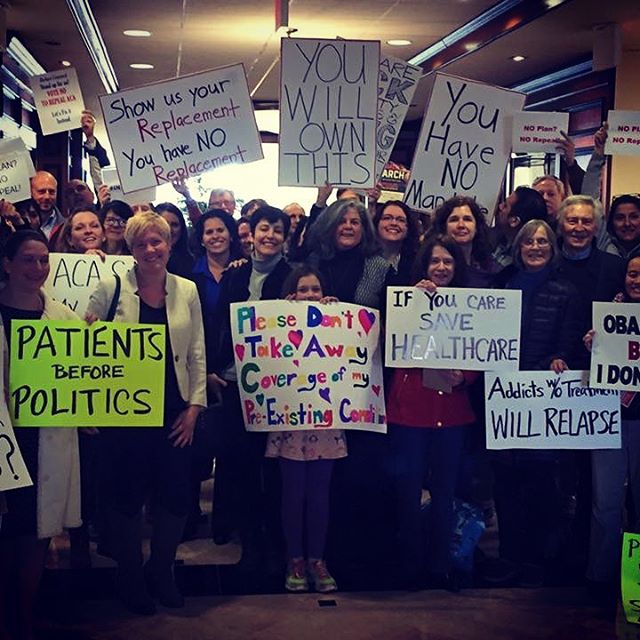 VOTE NO
TO REPEAL ACA
Let's Fix it
Instead.
Show us your
Replacement
You have NO
Replacement
YOU
WILL
OWN
THIS
ARE
You
Have
NO
NO Plan?
NO Repeal
NO
No Repe
Plan?
NO
peal!
ACA S
PATIENTS
BEFORE
POLITICS
Please Don't
Take Away
Coverage of my
Pre-Existing Condi
IF YOU CARE
SAVE
HEALTHCARE
Addicts w/o Treatment
WILL RELAPSE
OBA
B
I DON
?
P